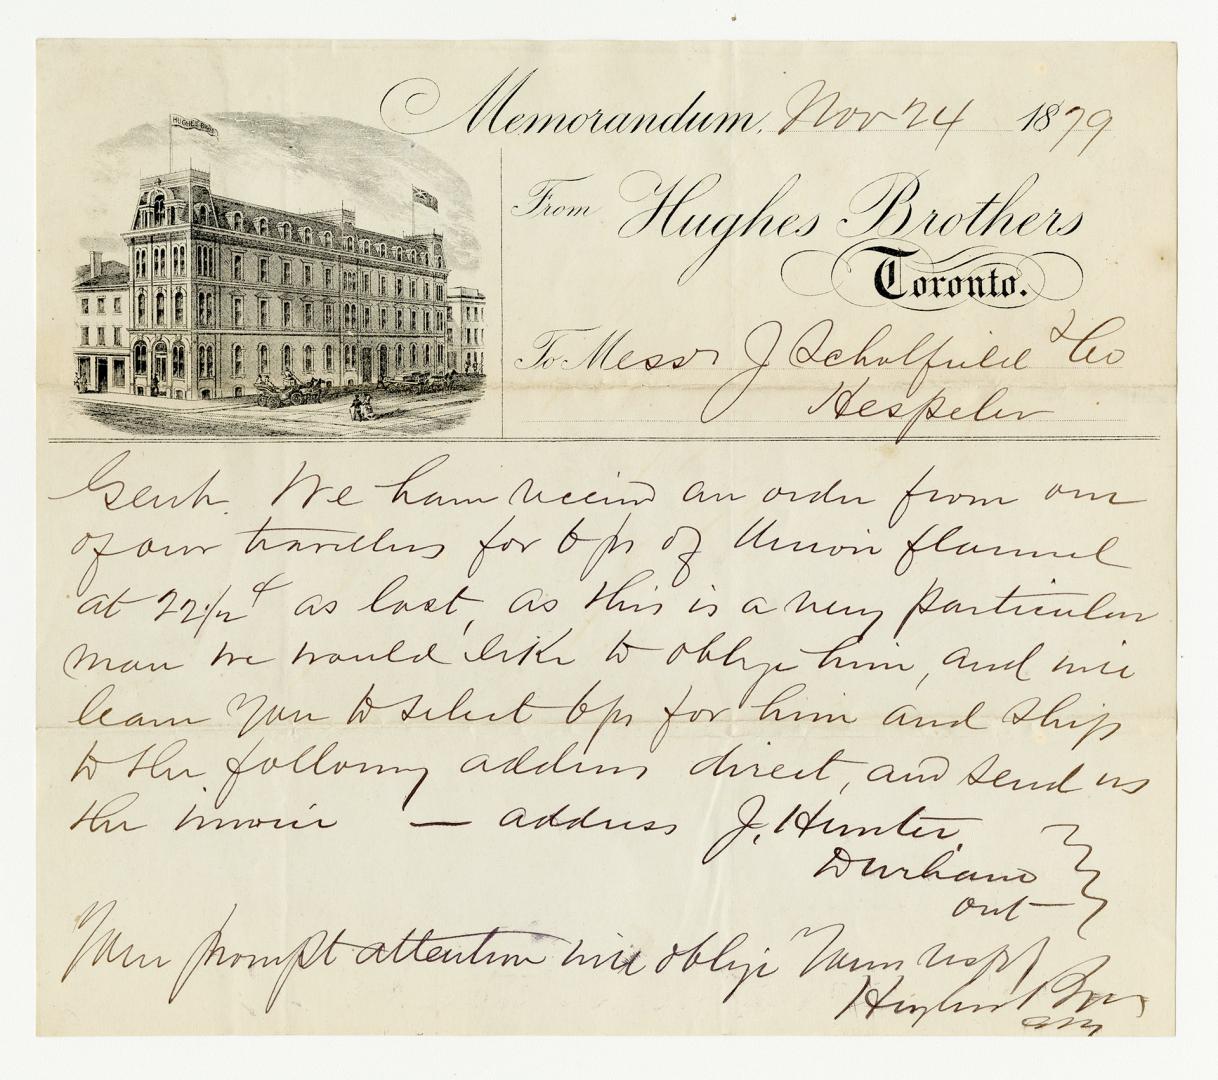 HUGHES BROS
Memorandum. Nov 24 1879
From Hughes Brothers
Toronto.
To Messrs J Scholfield & Co
Hespeler
Gents. We have received an order from one
of our travellers for 6 ps of Union flannel
at 22 1/2 ¢ as last, as this is a very particular
man we would like to oblige him, and will
leave you to select 6 ps for him and ship
to the following address direct, and send us
the invoice — address J. Hunter
Durham
Ont —
Your prompt attention will oblige Yours respy
Hughes Bros